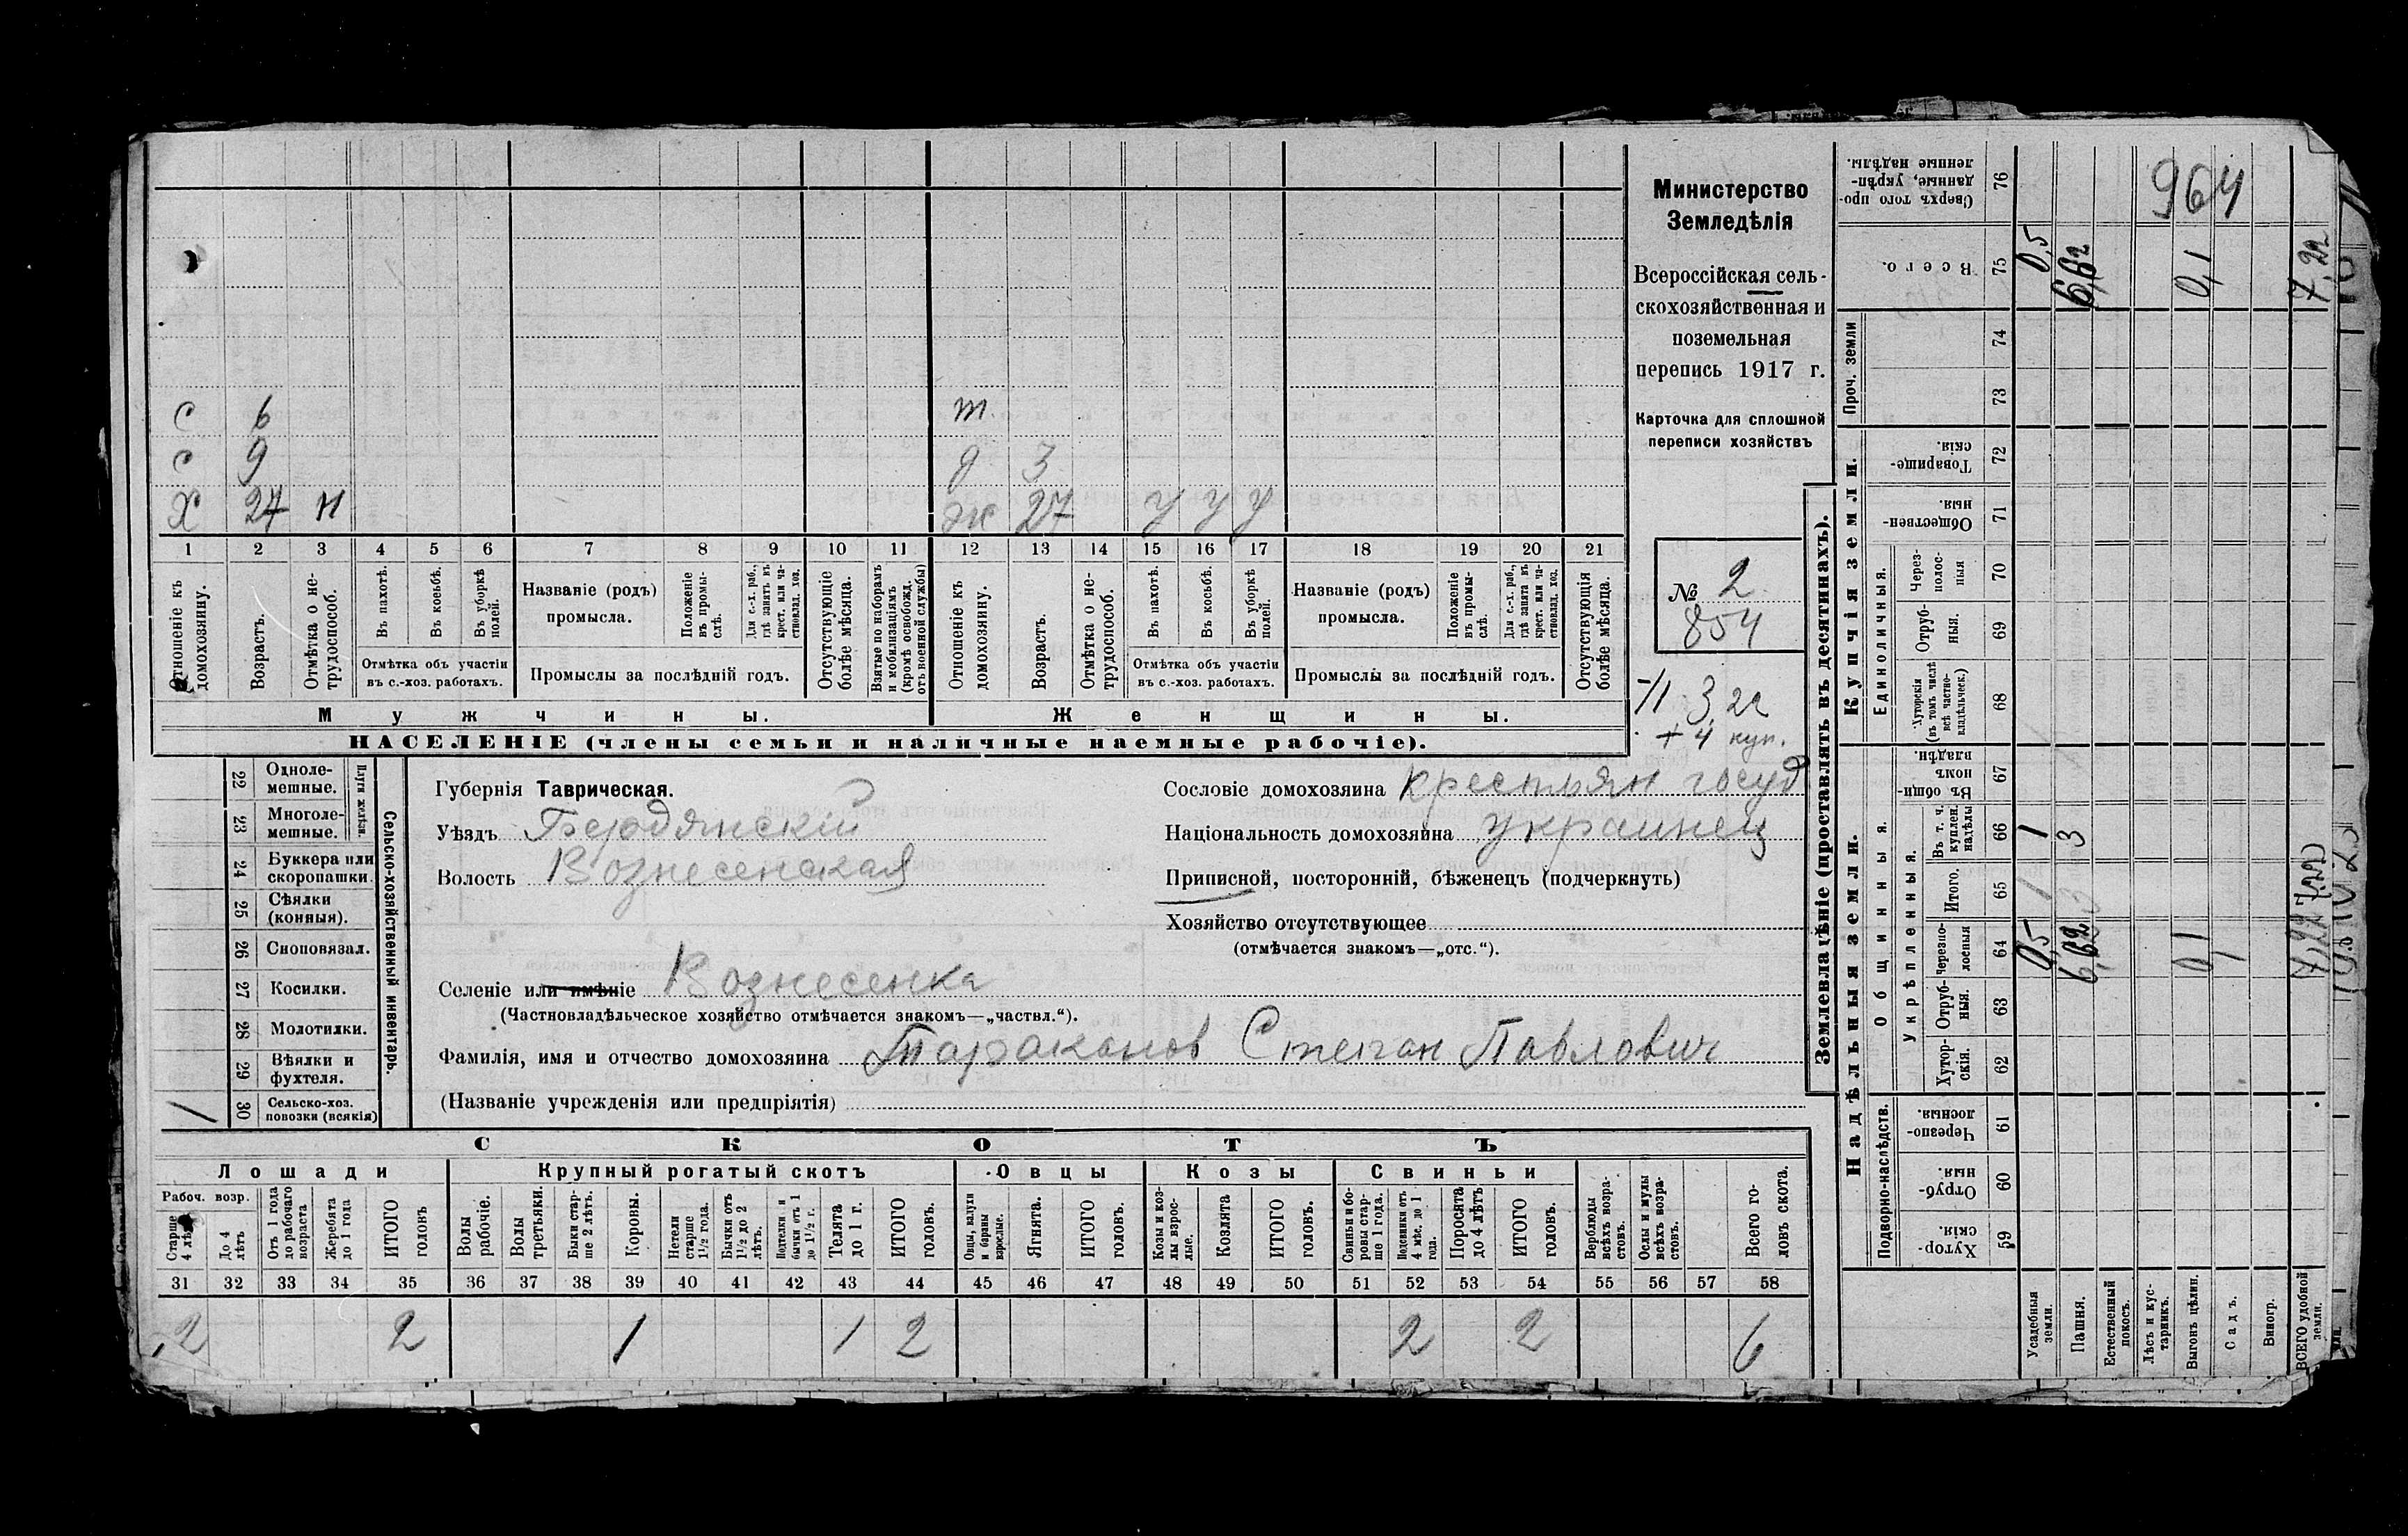 Министерство
Земледѣлія
Всероссійская сель-
скохозяйственная и
поземельная
перепись 1917 г.
Карточка для сплошной
переписи хозяйствъ
№ 2
854
3 22
+ 4 куп.
964
С 6 т
С 9 д 3
Х 27 н ж 27 У У У
1 2 3 4 5 6 7 8 9 10 11 12 13 14 15 16 17 18 19 20 21
Отношеніе къ домохозяину.
Возрастъ.
Отмѣтка о не-трудоспособ.
Въ пахотѣ.
Въ косьбѣ.
Въ уборкѣ полей.
Отмѣтка объ участіи
въ с.-хоз. работахъ.
Названіе (родъ)
промысла.
Положеніе въ промы-слѣ.
Для с.-х. раб., гдѣ занятъ въ крест. или ча-стновлад. хоз.
Промыслы за послѣдній годъ.
Отсутствующіе болѣе мѣсяца.
Взятые по наборамъ и мобилизаціямъ (кромѣ освобожд. отъ военной службы)
Отношеніе къ домохозяину.
Возрастъ.
Отмѣтка о не-трудоспособ.
Въ пахотѣ.
Въ косьбѣ.
Въ уборкѣ полей.
Отмѣтка объ участіи
въ с.-хоз. работахъ.
Названіе (родъ)
промысла.
Положеніе въ промы-слѣ.
Для с.-х. раб., гдѣ занята въ крест. или ча-стновлад. хоз.
Промыслы за послѣдній годъ.
Отсутствующія болѣе мѣсяца.
Мужчины. Женщины.
НАСЕЛЕНІЕ (члены семьи и наличные наемные рабочіе).
Сельско-хозяйственный инвентарь.
Плуги желѣзн.
22 Одноле-мешные.
23 Многоле-мешные.
24 Буккера или скоропашки.
25 Сѣялки (конныя).
26 Сноповязал.
27 Косилки.
28 Молотилки.
29 Вѣялки и фухтеля.
30 Сельско-хоз. повозки (всякія) 1
Губернія Таврическая.
Уѣздъ Бердянскій
Волость Вознесенская
Сословіе домохозяина крестьян госуд
Національность домохозяина украинец
Приписной, посторонній, бѣженецъ (подчеркнуть)
Хозяйство отсутствующее
(отмѣчается знакомъ—„отс.“).
Селеніе или имѣніе Вознесенка
(Частновладѣльческое хозяйство отмѣчается знакомъ—„частвл.“).
Фамилія, имя и отчество домохозяина Тараканов Степан Павлович
(Названіе учрежденія или предпріятія)
СКОТЪ
Лошади Крупный рогатый скотъ Овцы Козы Свиньи
Рабоч. возр.
Старше 4 лѣтъ
До 4 лѣтъ
Отъ 1 года до рабочаго возраста
Жеребята до 1 года
ИТОГО головъ
Волы рабочіе.
Волы третьяки.
Быки стар-ше 2 лѣтъ.
Коровы.
Нетели старше 1½ года.
Бычки отъ 1½ до 2 лѣтъ.
Подтелки и бычки отъ 1 до 1½ г.
Телята до 1 г.
ИТОГО головъ.
Овцы, валухи и бараны взрослые.
Ягнята.
ИТОГО головъ.
Козы и коз-лы взрос-лые.
Козлята
ИТОГО головъ.
Свиньи и бо-ровы стар-ше 1 года.
Подсвинки отъ 4 мѣс. до 1 года.
Поросята до 4 лѣтъ
ИТОГО головъ.
Верблюды всѣхъ возра-стовъ.
Ослы и мулы всѣхъ возра-стовъ.
Всего го-ловъ скота.
31 32 33 34 35 36 37 38 39 40 41 42 43 44 45 46 47 48 49 50 51 52 53 54 55 56 57 58
2 2 1 1 2 2 2 6
Землевладѣніе (проставлять въ десятинахъ).
Надѣльныя земли.
Купчія земли.
Проч. земли
Подворно-наслѣдств.
Общинныя.
Укрѣпленныя.
Единоличныя.
59 Хутор-скія.
60 Отруб-ныя.
61 Черезпо-лосныя.
62 Хутор-скія.
63 Отруб-ныя.
64 Черезпо-лосныя
65 Итого.
66 Въ т. ч. куплен. надѣлы
67 Въ общи-номъ владѣн.
68 Хуторскія (въ томъ числѣ всѣ частно-владѣльческ.)
69 Отруб-ныя.
70 Через-полос-ныя
71 Обществен-ныя.
72 Товарище-скія.
73
74
75 Всего.
76 Сверхъ того про-данные, укрѣп-ленные надѣлы.
Усадебныя земли. 0,5 1 1 0,5
Пашня. 6,62 3 3 6,62
Естественный покосъ.
Лѣсъ и кус-тарникъ.
Выгонъ цѣлин. 0,1 0,1
Садъ.
Виногр.
ВСЕГО удобной земли. 7,22 7,22 7,22